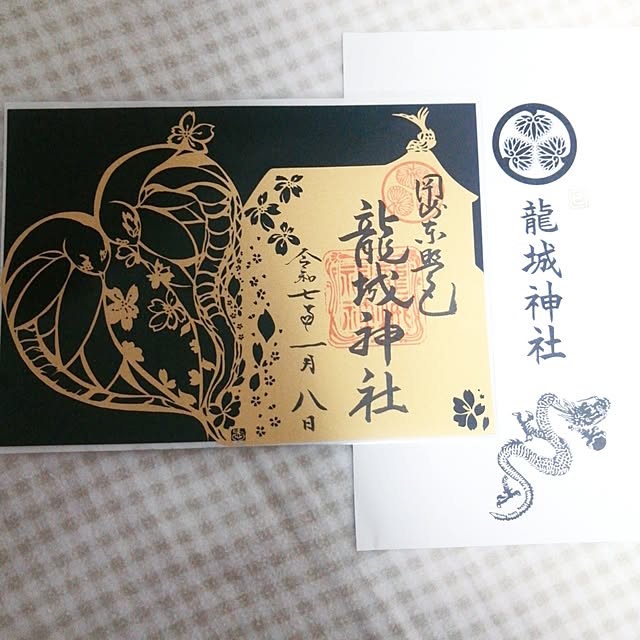 岡崎東照宮
龍城神社
令和七年一月八日
龍城神社